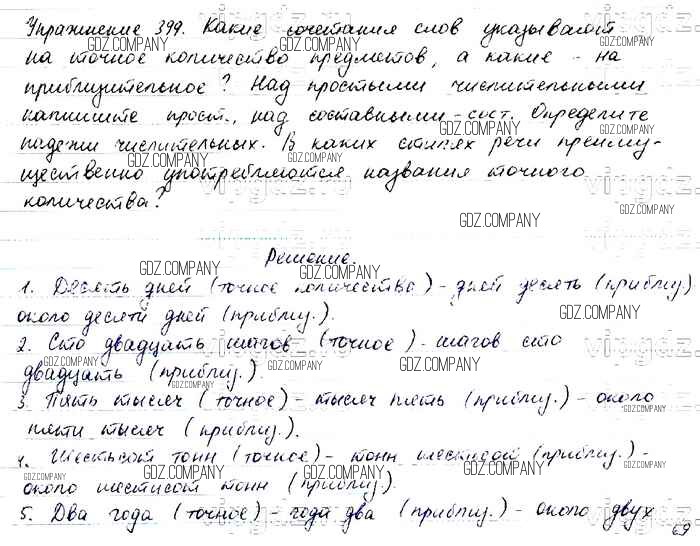 Упражнение 399. Какие сочетания слов указывают
на точное количество предметов, а какие - на
приблизительное? Над простыми числительными
напишите прост., над составными - сост. Определите
падежи числительных. В каких стилях речи преиму-
щественно употребляются названия точного
количества?
Решение.
1. Десять дней (точное количество) - дней десять (приблиз.)
около десяти дней (приблиз.).
2. Сто двадцать шагов (точное) - шагов сто
двадцать (приблиз.).
3. Пять тысяч (точное) - тысяч пять (приблиз.) - около
пяти тысяч (приблиз.).
4. Шестьсот тонн (точное) - тонн шестьсот (приблиз.) -
около шестисот тонн (приблиз.).
5. Два года (точное) - года два (приблиз.) - около двух
69
GDZ.COMPANY